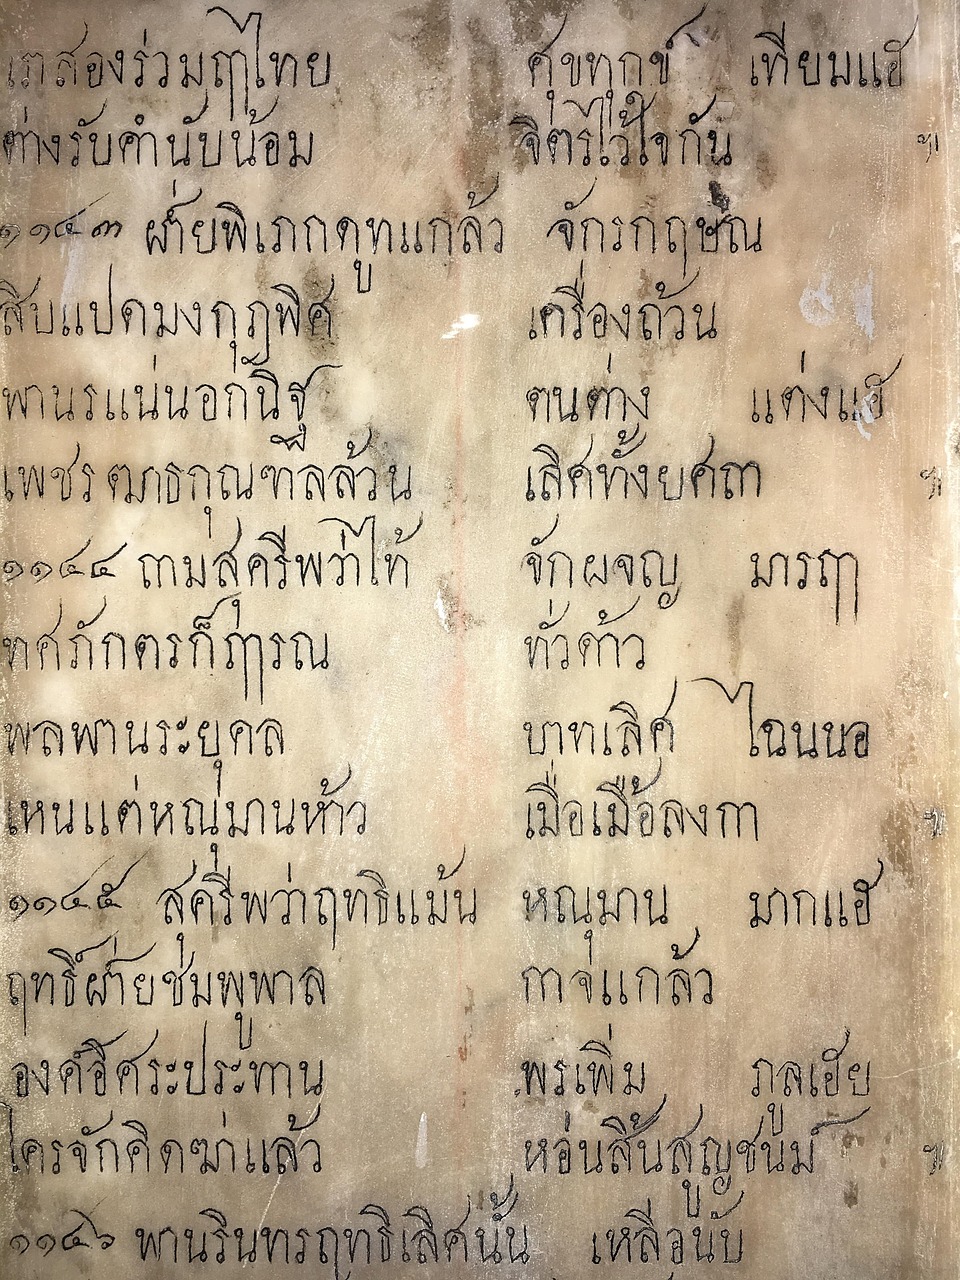 เราสองร่วมฤๅไทย ศุขทุกข์ เทียมแฮ
ต่างรับคำนับน้อม จิตรไว้ใจกัน ฯ
๑๑๔๓ ฝ่ายพิเภกดูทแกล้ว จักรกฤษณ
สิบแปดมงกุฎพิศ เครื่องถ้วน
พานรแน่นอกนิฐ ตนต่าง แต่งแฮ
เพชรฒาธกุณฑลล้วน เลิศทั้งยศถา ฯ
๑๑๔๔ ถามสุครีพว่าไท้ จักผจญ มารฤๅ
ทศภักตรก็ฤๅรณ ทั่วด้าว
พลพานระยุคล บาทเลิศ ไฉนนอ
เหนแต่หณุมานห้าว เมื่อเมื้อลงกา ฯ
๑๑๔๕ สุครีพว่าฤทธิแม้น หณุมาน มากแฮ
ฤทธิ์ฝ่ายชมพูพาล กาจแกล้ว
องค์อิศระประทาน พรเพิ่ม ภูลเฮย
ใครจักคิดฆ่าแล้ว ห่อนสิ้นสูญชนม์ ฯ
๑๑๔๖ พานรินทรฤทธิเลิศนั้น เหลือนับ